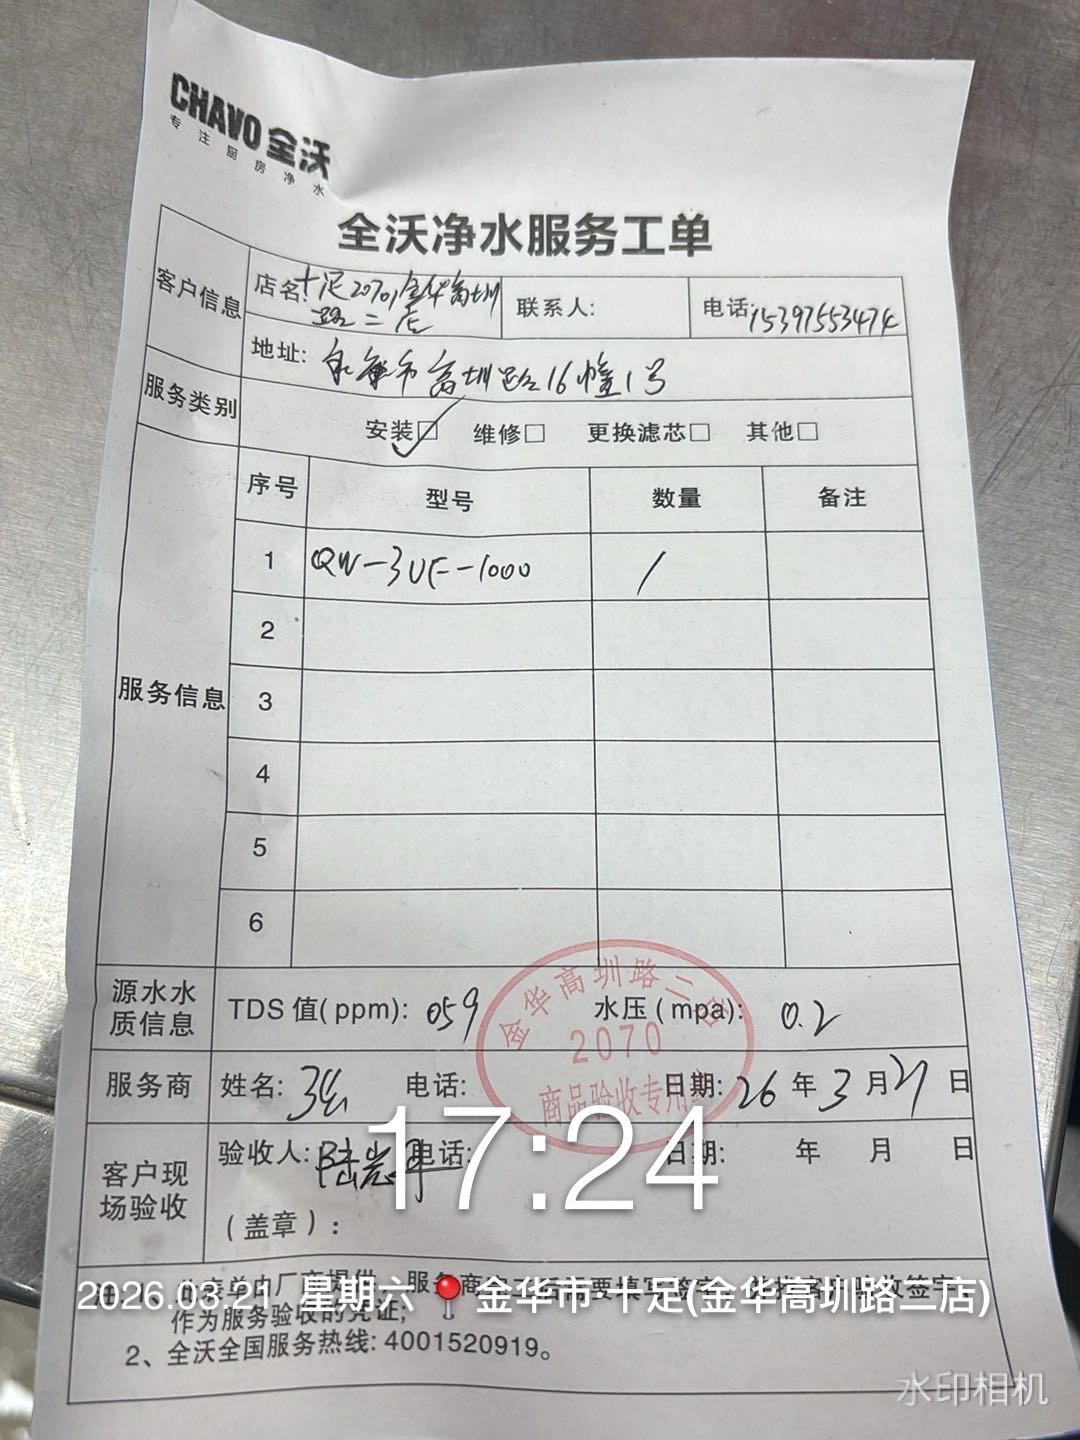 CHAVO 全沃
专注厨房净水
全沃净水服务工单
客户信息
店名: 十足2070金华高圳路二店
联系人:
电话: 15397553474
地址: 永康市高圳路16幢1号
服务类别
安装☑ 维修□ 更换滤芯□ 其他□
服务信息
序号 型号 数量 备注
1 QW-3UF-1000 1
2
3
4
5
6
源水水质信息
TDS 值(ppm): 059 水压(mpa): 0.2
金华高圳路二店
2070
商品验收专用章
服务商
姓名: 电话: 日期: 26年3月21日
客户现场验收
验收人: 电话: 日期: 年 月 日
(盖章):
17:24
2026.03.21 星期六 金华市·十足(金华高圳路二店)
作为服务验收的凭证;
2、全沃全国服务热线: 4001520919。
水印相机